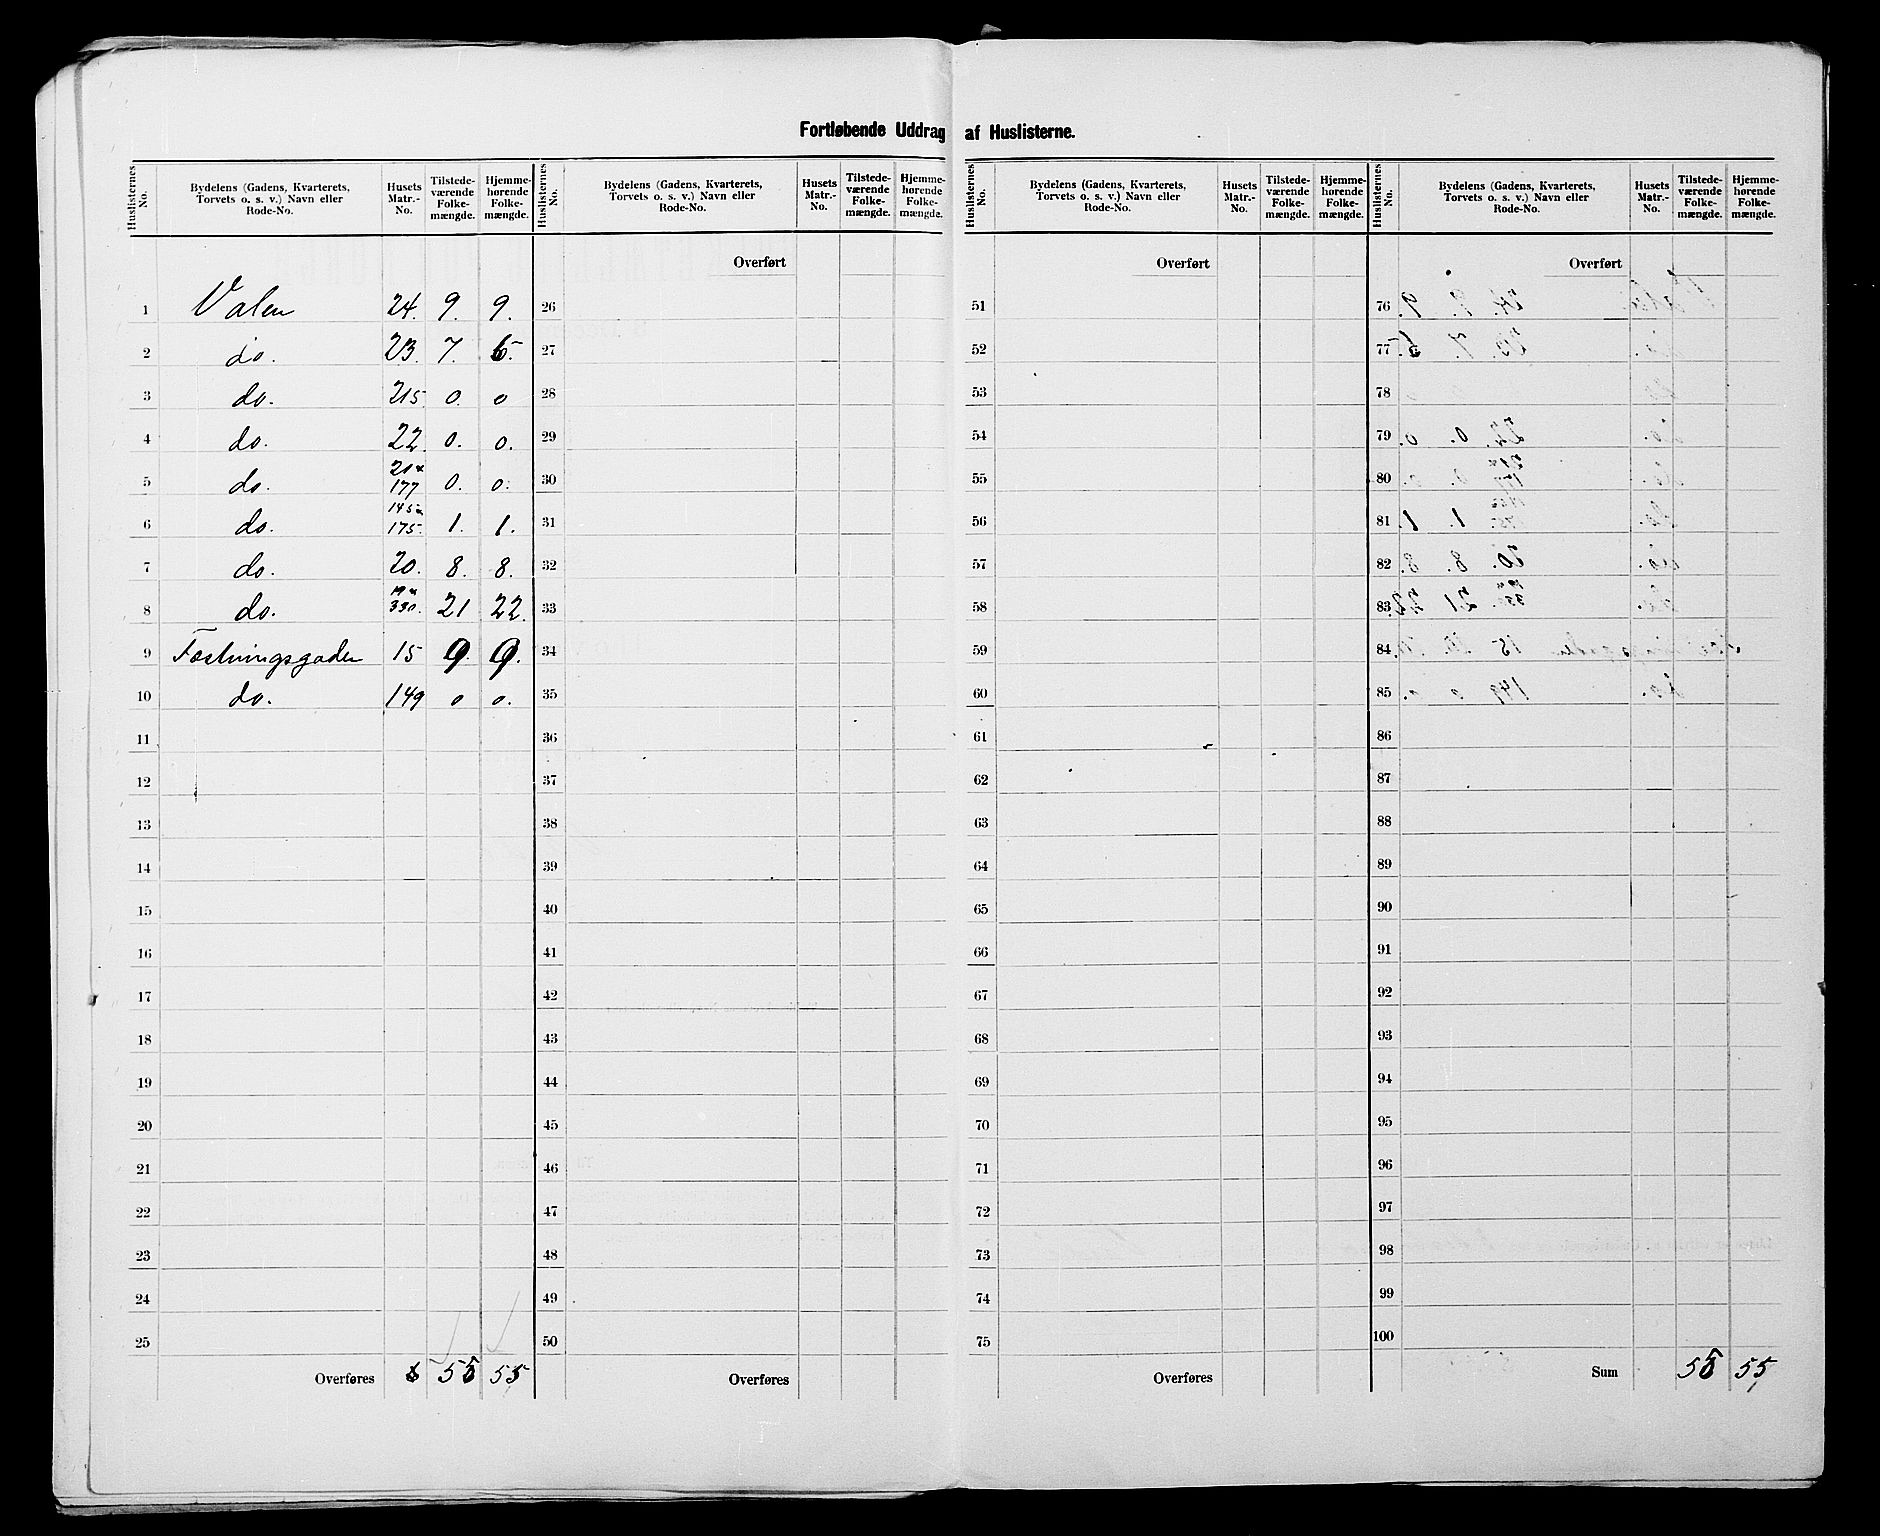 Fortløbende Uddrag af Huslisterne.
Huslisternes No. | Bydelens (Gadens, Kvarterets, Torvets o. s. v.) Navn eller Rode-No. | Husets Matr.-No. | Tilstedeværende Folkemængde. | Hjemmehørende Folkemængde.
Huslisternes No. | Bydelens (Gadens, Kvarterets, Torvets o. s. v.) Navn eller Rode-No. | Husets Matr.-No. | Tilstedeværende Folkemængde. | Hjemmehørende Folkemængde.
Huslisternes No. | Bydelens (Gadens, Kvarterets, Torvets o. s. v.) Navn eller Rode-No. | Husets Matr.-No. | Tilstedeværende Folkemængde. | Hjemmehørende Folkemængde.
Huslisternes No. | Bydelens (Gadens, Kvarterets, Torvets o. s. v.) Navn eller Rode-No. | Husets Matr.-No. | Tilstedeværende Folkemængde. | Hjemmehørende Folkemængde.
Overført Overført Overført
1 Volen 24. 9. 9. 26 51 76
2 do. 23. 7. 27 52 77
3 do. 215. 0. 0 28 53 78
4 do. 22. 0. 0. 29 54 79
5 do. 177 0. 0. 30 55 80
6 do. 175. 1. 1. 31 56 81
7 do. 20. 8. 8. 32 57 82
8 do. 330. 21 22. 33 58 83
9 Fæstningsgaden 15 9. 9. 34 59 84
10 do. 149 0 0. 35 60 85
11 36 61 86
12 37 62 87
13 38 63 88
14 39 64 89
15 40 65 90
16 41 66 91
17 42 67 92
18 43 68 93
19 44 69 94
20 45 70 95
21 46 71 96
22 47 72 97
23 48 73 98
24 49 74 99
25 50 75 100
Overføres 55 55 Overføres Overføres Sum 55 55